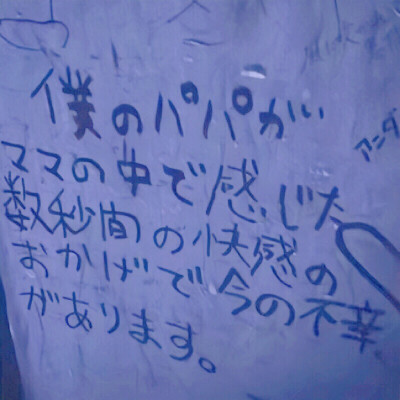 僕のパパがい
ママの中で感じた
数秒間の快感の
おかげで今の不幸
があります。
アニタ